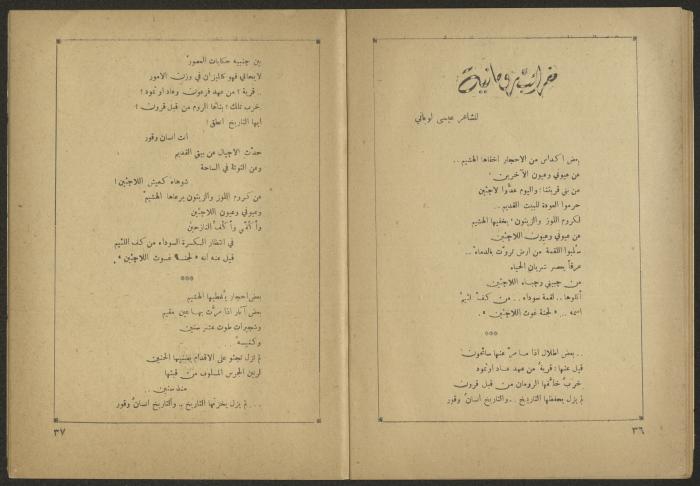 خرائب رومانية
للشاعر عيسى لوباني
بعض اكداس من الاحجار اخفاها الهشيم ..
عن عيوني وعيون الآخرين !
من بني قريتنا ؛ واليوم عدّوا لاجئين
حرموا العودة للبيت القديم ..
لكروم اللوز والزيتون ؛ يخفيها الهشيم
عن عيوني وعيون اللاجئين
سلبوا اللقمة من ارض تروّت بالدماء ..
عرقاً يعصر شريان الحياه
من جبيني وجباه اللاجئين
أبدلوها .. لقمة سوداء .. من كف لئيم
اسمه .. « لجنة غوث اللاجئين » .
***
.. بعض اطلال اذا ما مرّ عنها سائحون
قيل عنها : قرية من عهد عاد او ثمود
خربٌ خلّفها الرومان من قبل قرون
لم يزل يحفظها التاريخ .. والتاريخ انسانٌ وقور
٣٦
بين جنبيه حكايات العصور
لا يحابي فهو كالميزان في وزن الامور
.. قرية ؟ من عهد فرعون وعاد او ثمود ؟
خرب تلك ؟ بناها الروم من قبل قرون ؟
ايها التاريخ انطق !
انت انسان وقور
حدّث الاجيال عن بيتي القديم
وعن التوتة في الساحة
شوهاء كعيش اللاجئين !
عن كروم اللوز والزيتون يرعاها الهشيم
وعيوني وعيون اللاجئين
وأكفّي وأكفّ النازحين
في انتظار الكسرة السوداء من كف اللئيم
قيل عنه انه « لجنة غوث اللاجئين » .
***
بعض احجار يغطيها الهشيم
بعض آثار اذا مرّت بها عين مقيم
وشجيرات طوت عشر سنين
وكنيسه ..
لم تزل تجثو على الاقدام يضنيها الحنين
لرنين الجرس المسلوب من قبتها
منذ سنين ..
... لم يزل يخزنها التاريخ .. والتاريخ انسانٌ وقور
٣٧